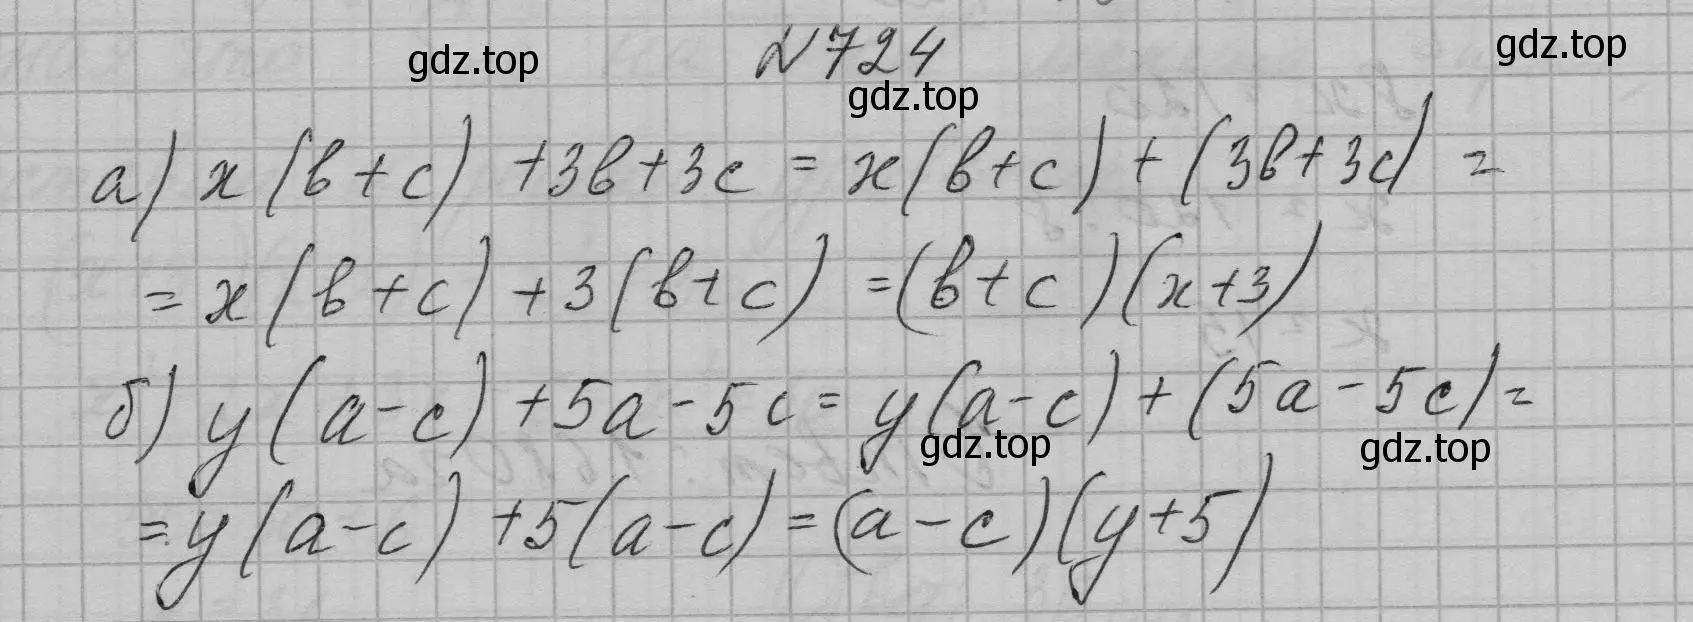 gdz.top №724 gdz.top
gdz.top
а) x(в+c) +3в+3c = x(в+c) + (3в+3c) =
= x(в+c) + 3(в+c) = (в+c)(x+3)
б) y(a-c) + 5a - 5c = y(a-c) + (5a - 5c) =
gdz.top gdz.top
= y(a-c) + 5(a-c) = (a-c)(y+5)